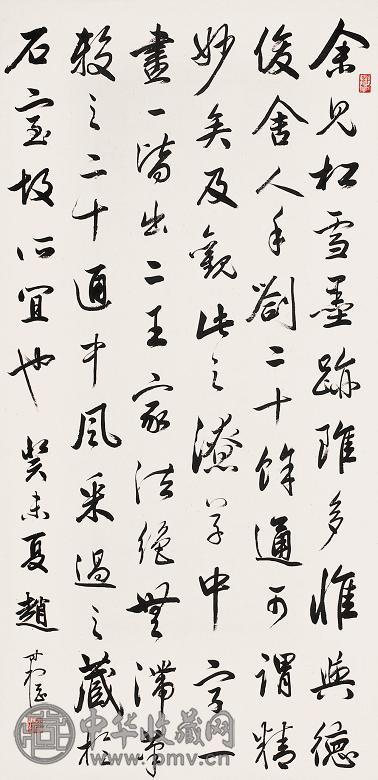 余見松雪墨跡雖多惟與德
俊舍人手劄二十餘通可謂精
妙矣及觀此之潦草中字一
畫一皆出二王家法絕無滯筆
較之二十通中風采過之藏於
石室故所宜也 癸未夏趙
中华收藏网
www.pmv.cn